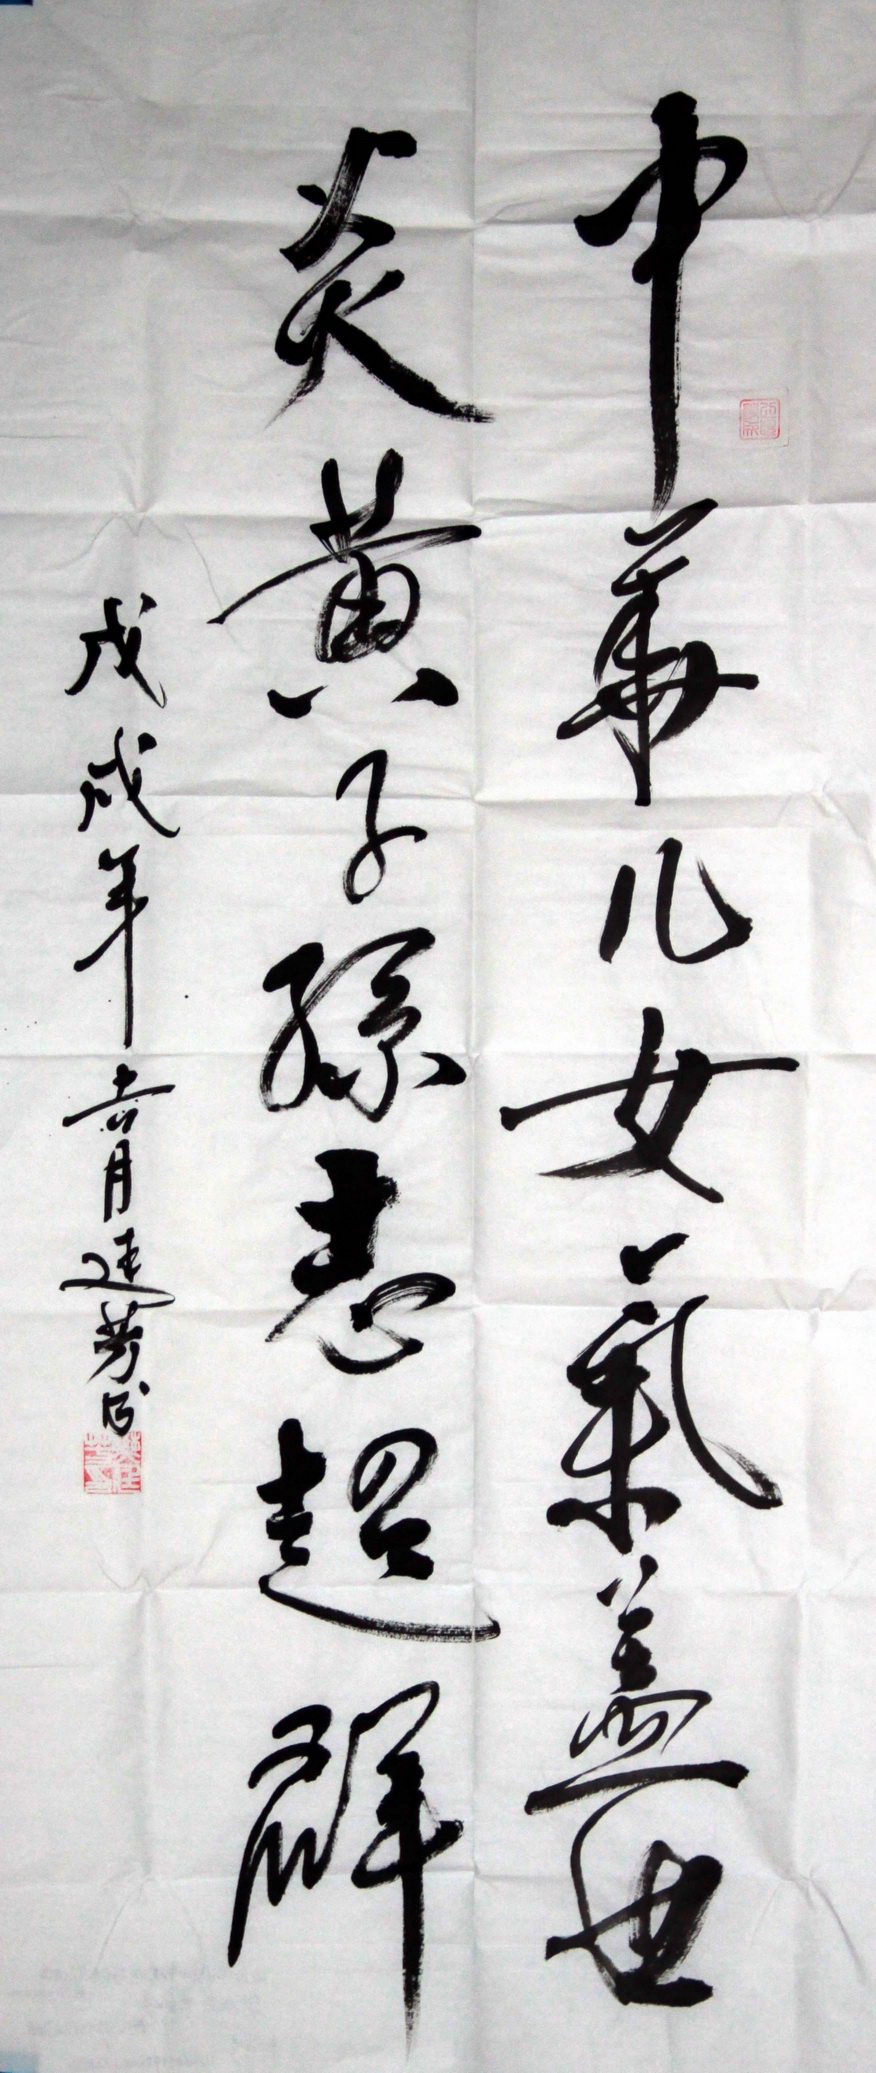 中華儿女氣盖世
炎黄子孫志超群
戊戌年吉月建芳书